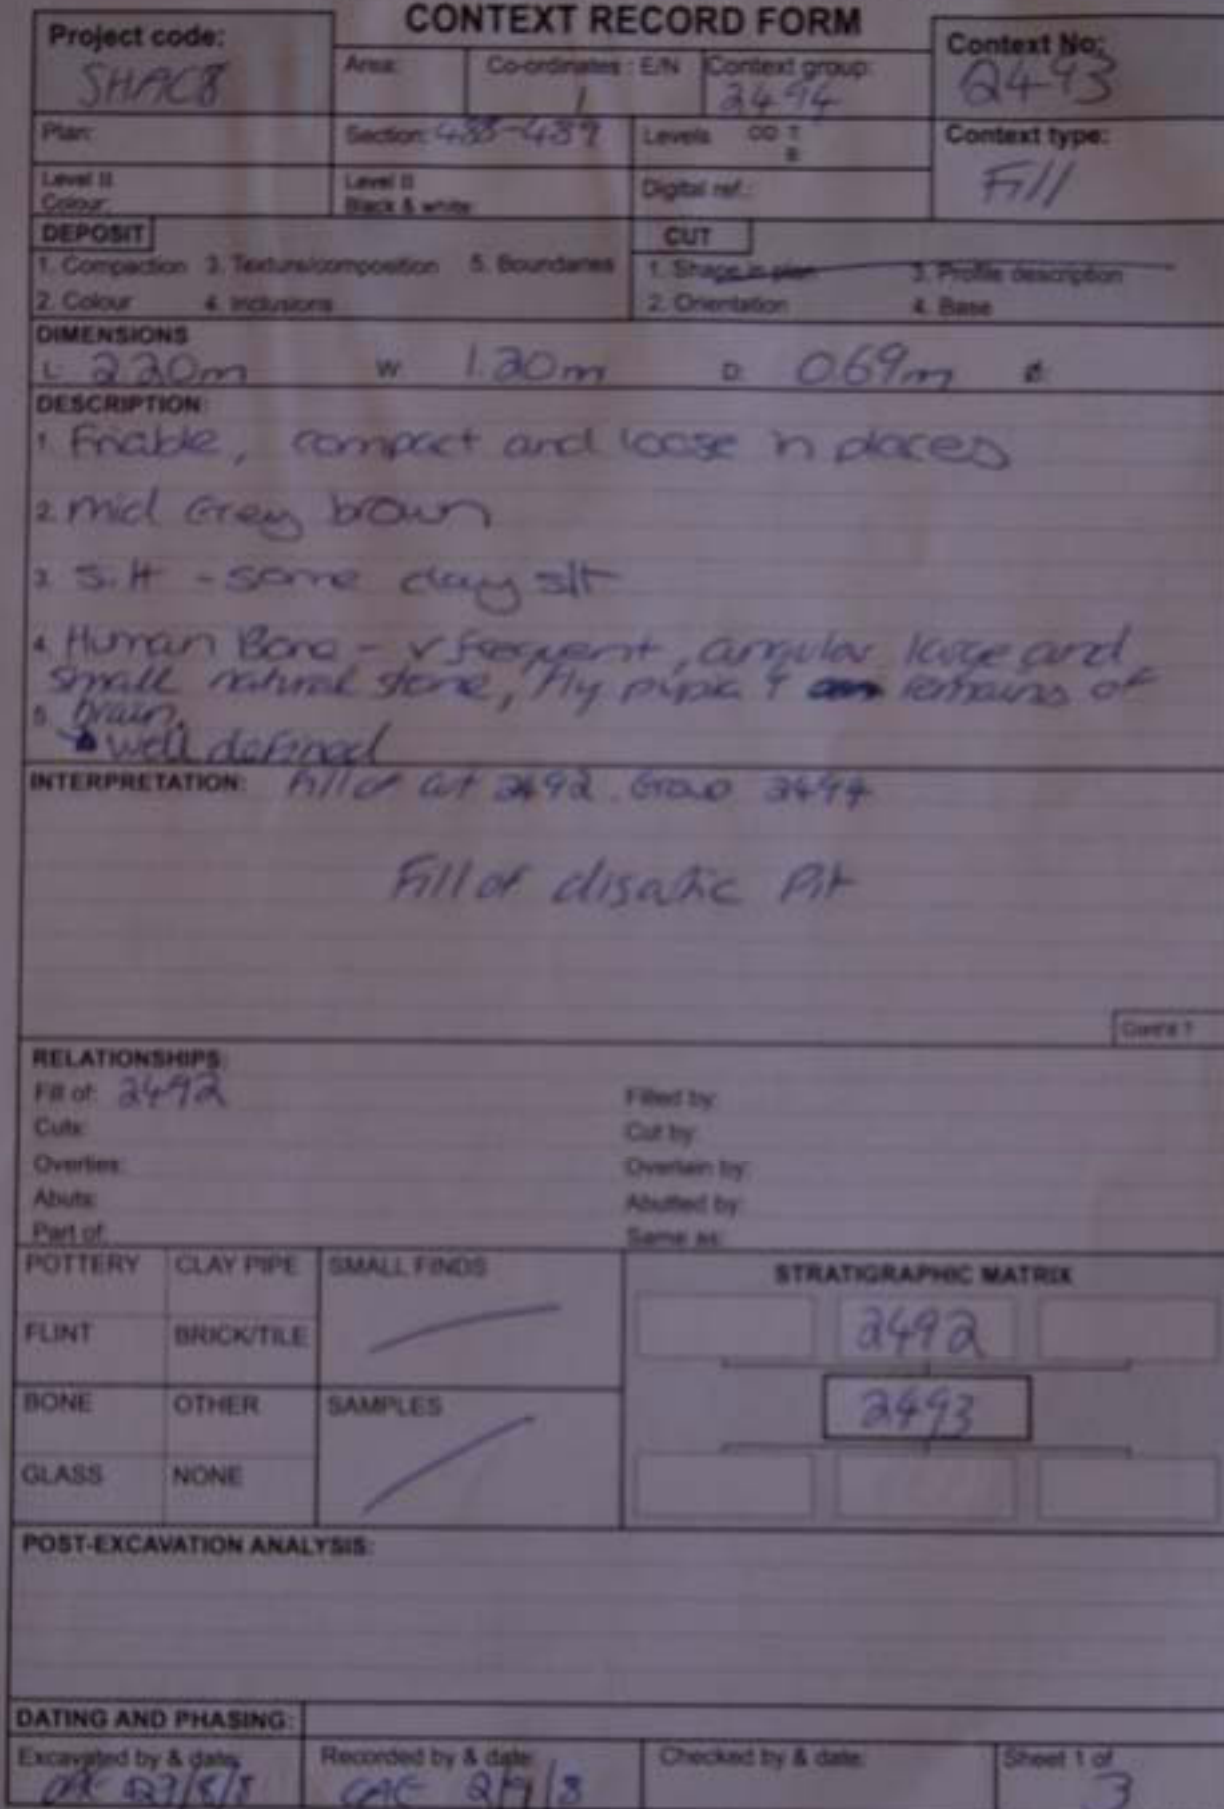 CONTEXT RECORD FORM
Project code:
SHAC8
Area:
Co-ordinates : E/N
/
Context group:
2494
Context No:
2493
Plan:
Section: 488-489
Levels OD T:
B:
Context type:
Fill
Level II
Colour:
Level II
Black & white:
Digital ref.:
DEPOSIT
1. Compaction 3. Texture/composition 5. Boundaries
2. Colour 4. Inclusions
CUT
1. Shape in plan 3. Profile description
2. Orientation 4. Base
DIMENSIONS
L: 2.20m W: 1.20m D: 0.69m Ø:
DESCRIPTION:
1. Friable, compact and loose in places
2. mid Grey brown
3. Silt - some clay silt
4. Human Bone - v frequent, angular large and
small natural stone, fly pupa & remains of
5. brain.
well defined
INTERPRETATION: Fill of cut 2492. Group 2494
Fill of Pit
Cont'd ?
RELATIONSHIPS:
Fill of: 2492
Filled by:
Cuts:
Cut by:
Overlies:
Overlain by:
Abuts:
Abutted by:
Part of:
Same as:
POTTERY
CLAY PIPE
SMALL FINDS
FLINT
BRICK/TILE
BONE
OTHER
SAMPLES
GLASS
NONE
STRATIGRAPHIC MATRIX
2492
2493
POST-EXCAVATION ANALYSIS:
DATING AND PHASING:
Excavated by & date:
27/8/8
Recorded by & date:
2/9/8
Checked by & date:
Sheet 1 of
3